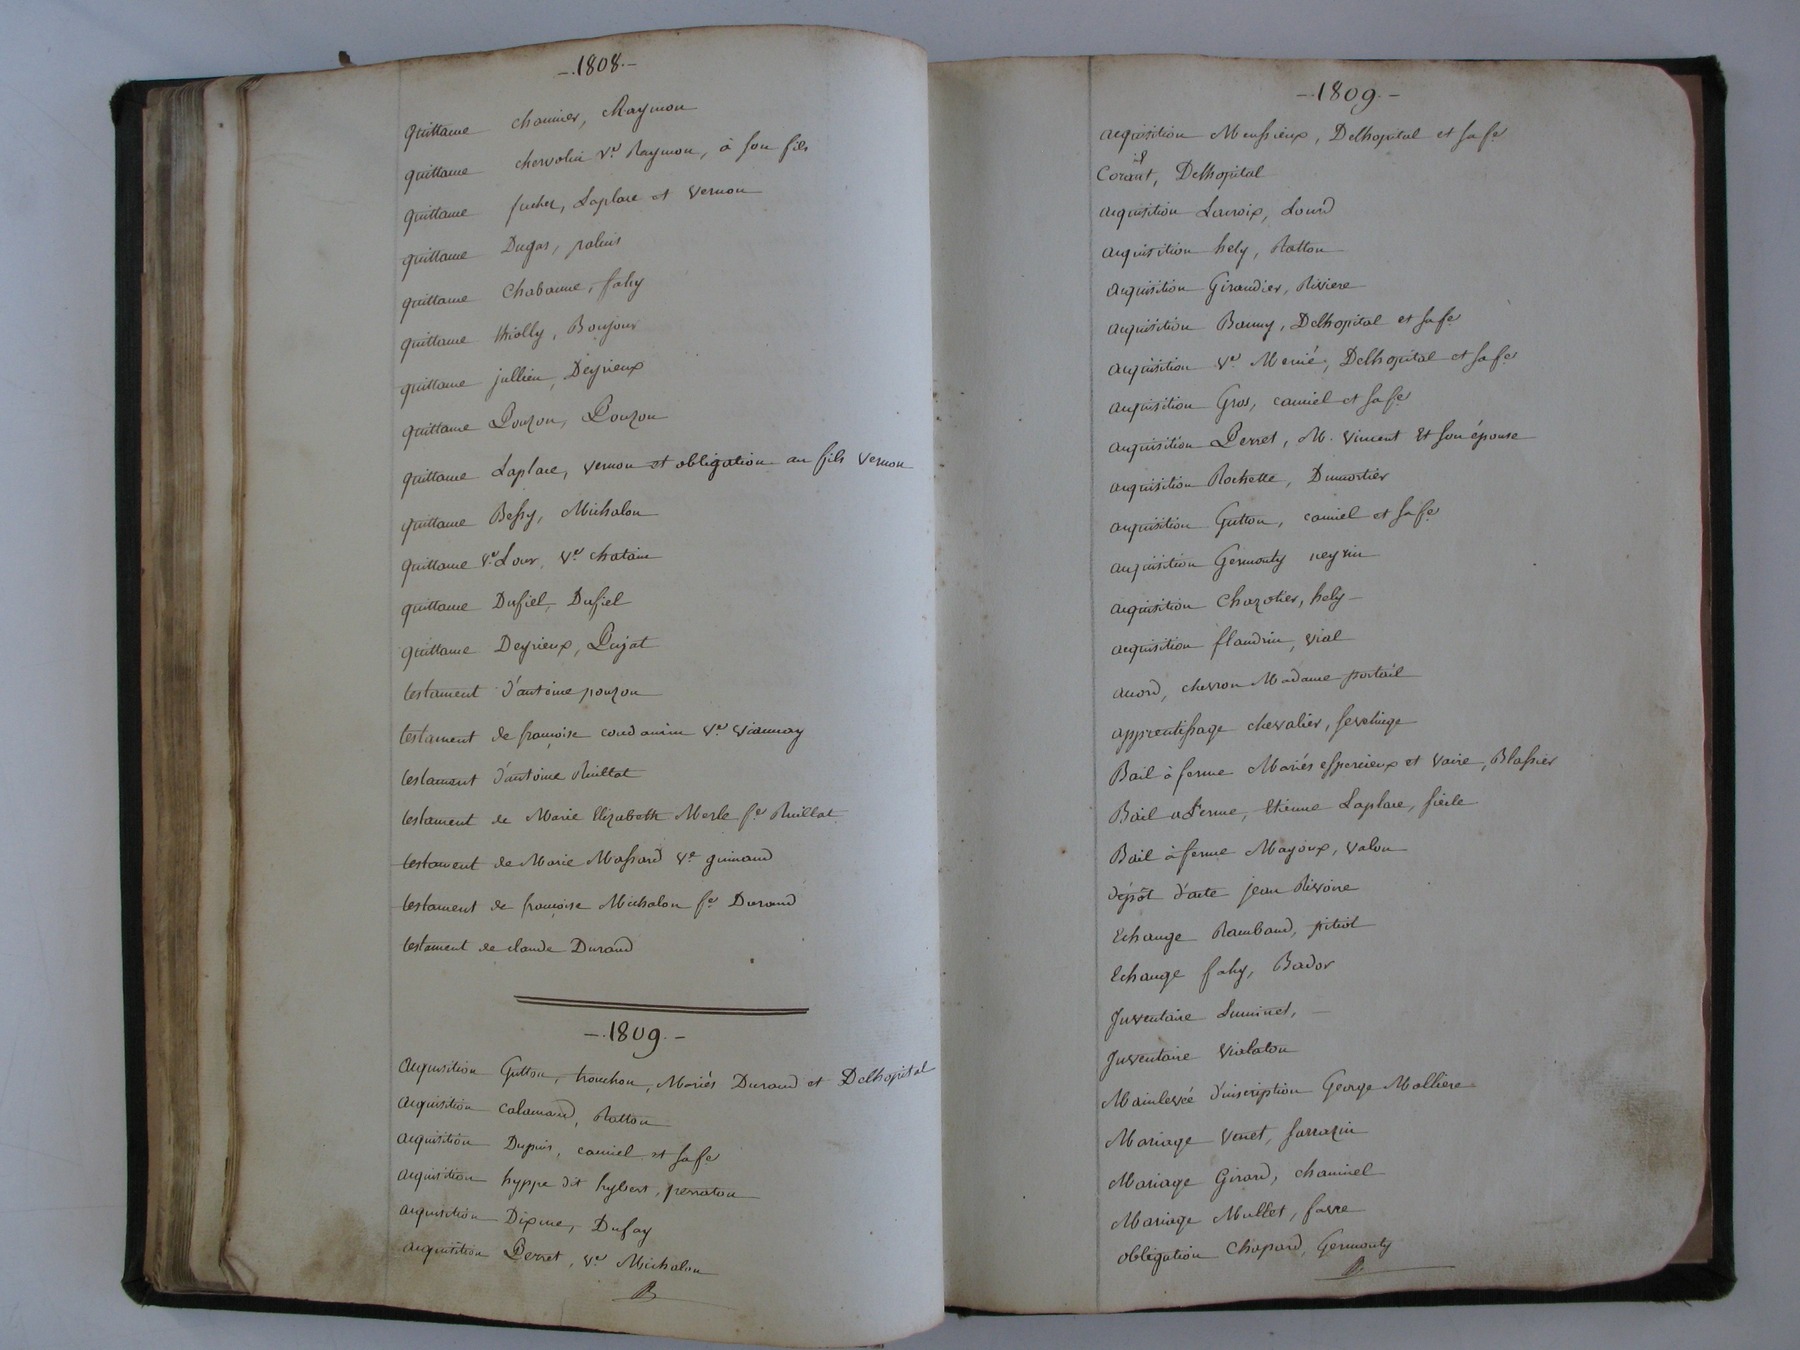 -.1808.-
quittance chaumier, Raymon
quittance chervolin Ve. Raymon, à son fils
quittance fucher, Laplace et vernon
quittance Dugas, palais
quittance Chabanne, fahy
quittance thiolly, Bonjour
quittance jullien, Deyrieux
quittance Pouzon, Pouzon
quittance Laplace, vernon et obligation au fils vernon
quittance Bessy, Michalon
quittance Ve. Lour, Ve. chatain
quittance Dufiel, Dufiel
quittance Deyrieux, Pujat
testament d'antoine pouzon
testament de françoise Ve. viannay
testament d'antoine Ruillat
testament de Marie Elizabeth Merle fe. Ruillat
testament de Marie Massard Ve. guinand
testament de françoise Michalon fe. Durand
testament de claude Durand
-.1809.-
acquisition Gutton, tronchon, Mariés Durand et Delhopital
acquisition calamard, Ratton
acquisition Dupuis, camiel et sa fe.
acquisition hyppe dit hybert, perraton
acquisition Dufay
acquisition Perret, Ve. Michalon
-.1809.-
acquisition Meussieux, Delhopital et sa fe.
Delhopital
acquisition Lacroix, Lourd
acquisition hely, Ratton
acquisition Giraudier, Riviere
acquisition Delhopital et sa fe.
acquisition Ve. Mernié, Delhopital et sa fe.
acquisition Gros, camiel et sa fe.
acquisition Perret, M. vincent et son épouse
acquisition Rochette, Dumortier
acquisition Gutton, camiel et sa fe.
acquisition Germonty neyrin
acquisition Chazotier, hely
acquisition flandrin, vial
accord, chevron Madame portail
apprentissage chevalier, sevelinge
Bail à ferme Mariés espercieux et voire, Blassier
Bail a ferme, Etienne Laplace, fiéile
Bail à ferme Mayoux, valon
dépôt d'acte jean Rivoire
Echange Rambaud, pitiot
Echange fahy, Bador
Inventaire Luminet,
Inventaire vialaton
Mainlevée d'inscription George Molliere
Mariage venet, sarrazin
Mariage Girard, chaminel
Mariage Mullet, favre
obligation Chapard, Germonty